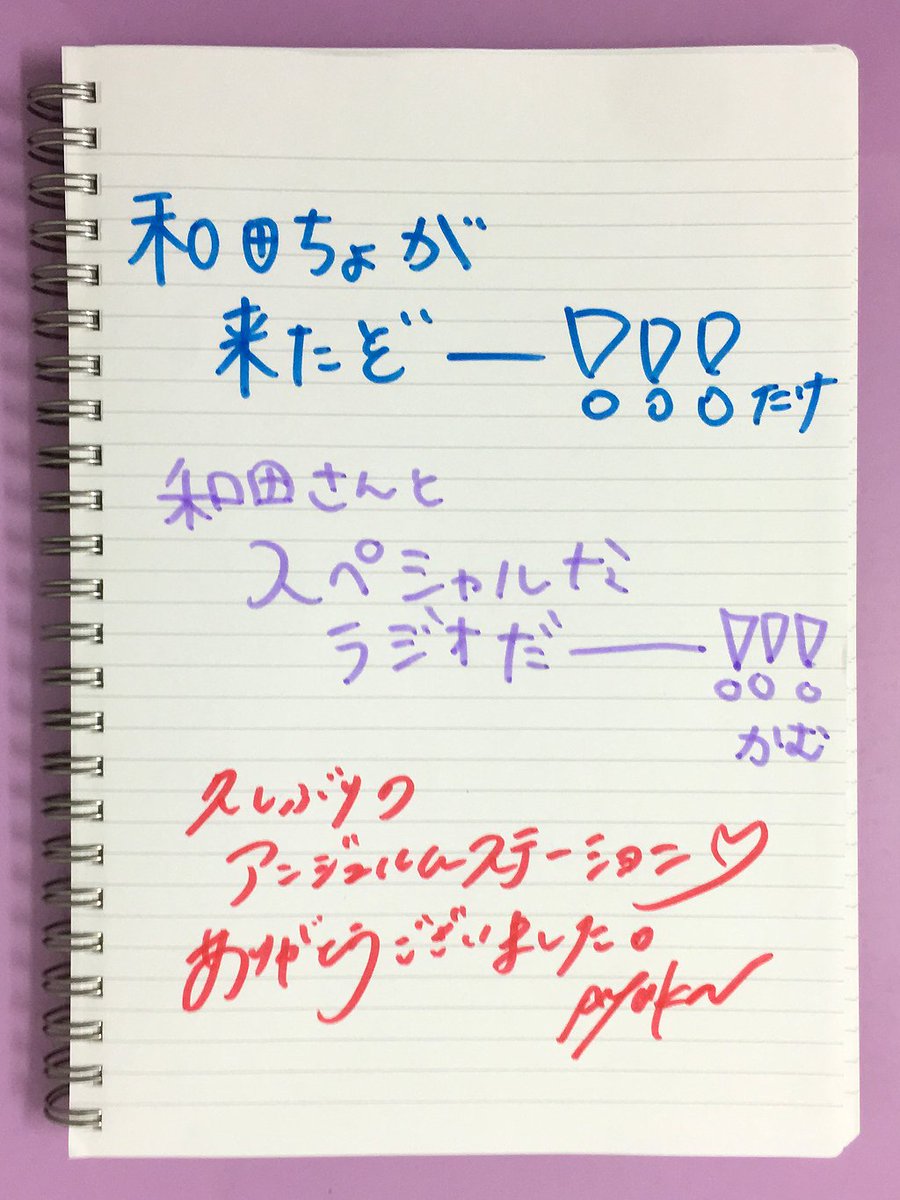 和田ちょが
来たぞー!!!
だけ
和田さんと
スペシャルな
ラジオだー!!!
かむ
久しぶりの
アンジュルムステーション♡
ありがとうございました。